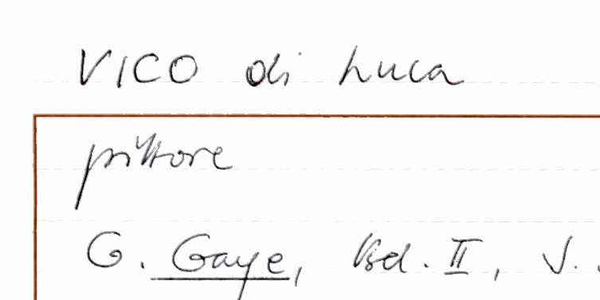 VICO di Luca
pittore
G. Gaye, Bd. II, S.